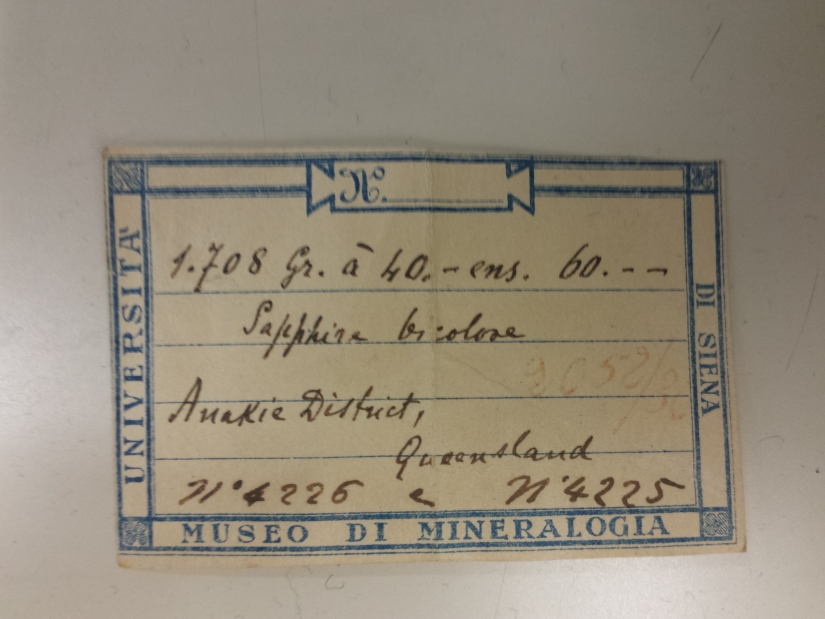 Nº.
UNIVERSITÀ
1.708 Gr. à 40.- ens. 60.---
Sapphire bicolore
Anakie District,
Queensland
Nº 4226 e Nº 4225
DI SIENA
MUSEO DI MINERALOGIA